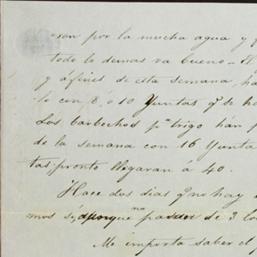 xon por la mucha agua y q
todo lo demas va bueno-
y á fines de esta semana, ha
lo con 8 ó 10 Yuntas q.e he
Los barbechos p.a trigo hán p
de la semana con 16 Yunta
tas pronto llegarán á 40.
Hace dos dias q.e no hay
mos sé, aunque no pasan de 3 lo
Me importa saber el p